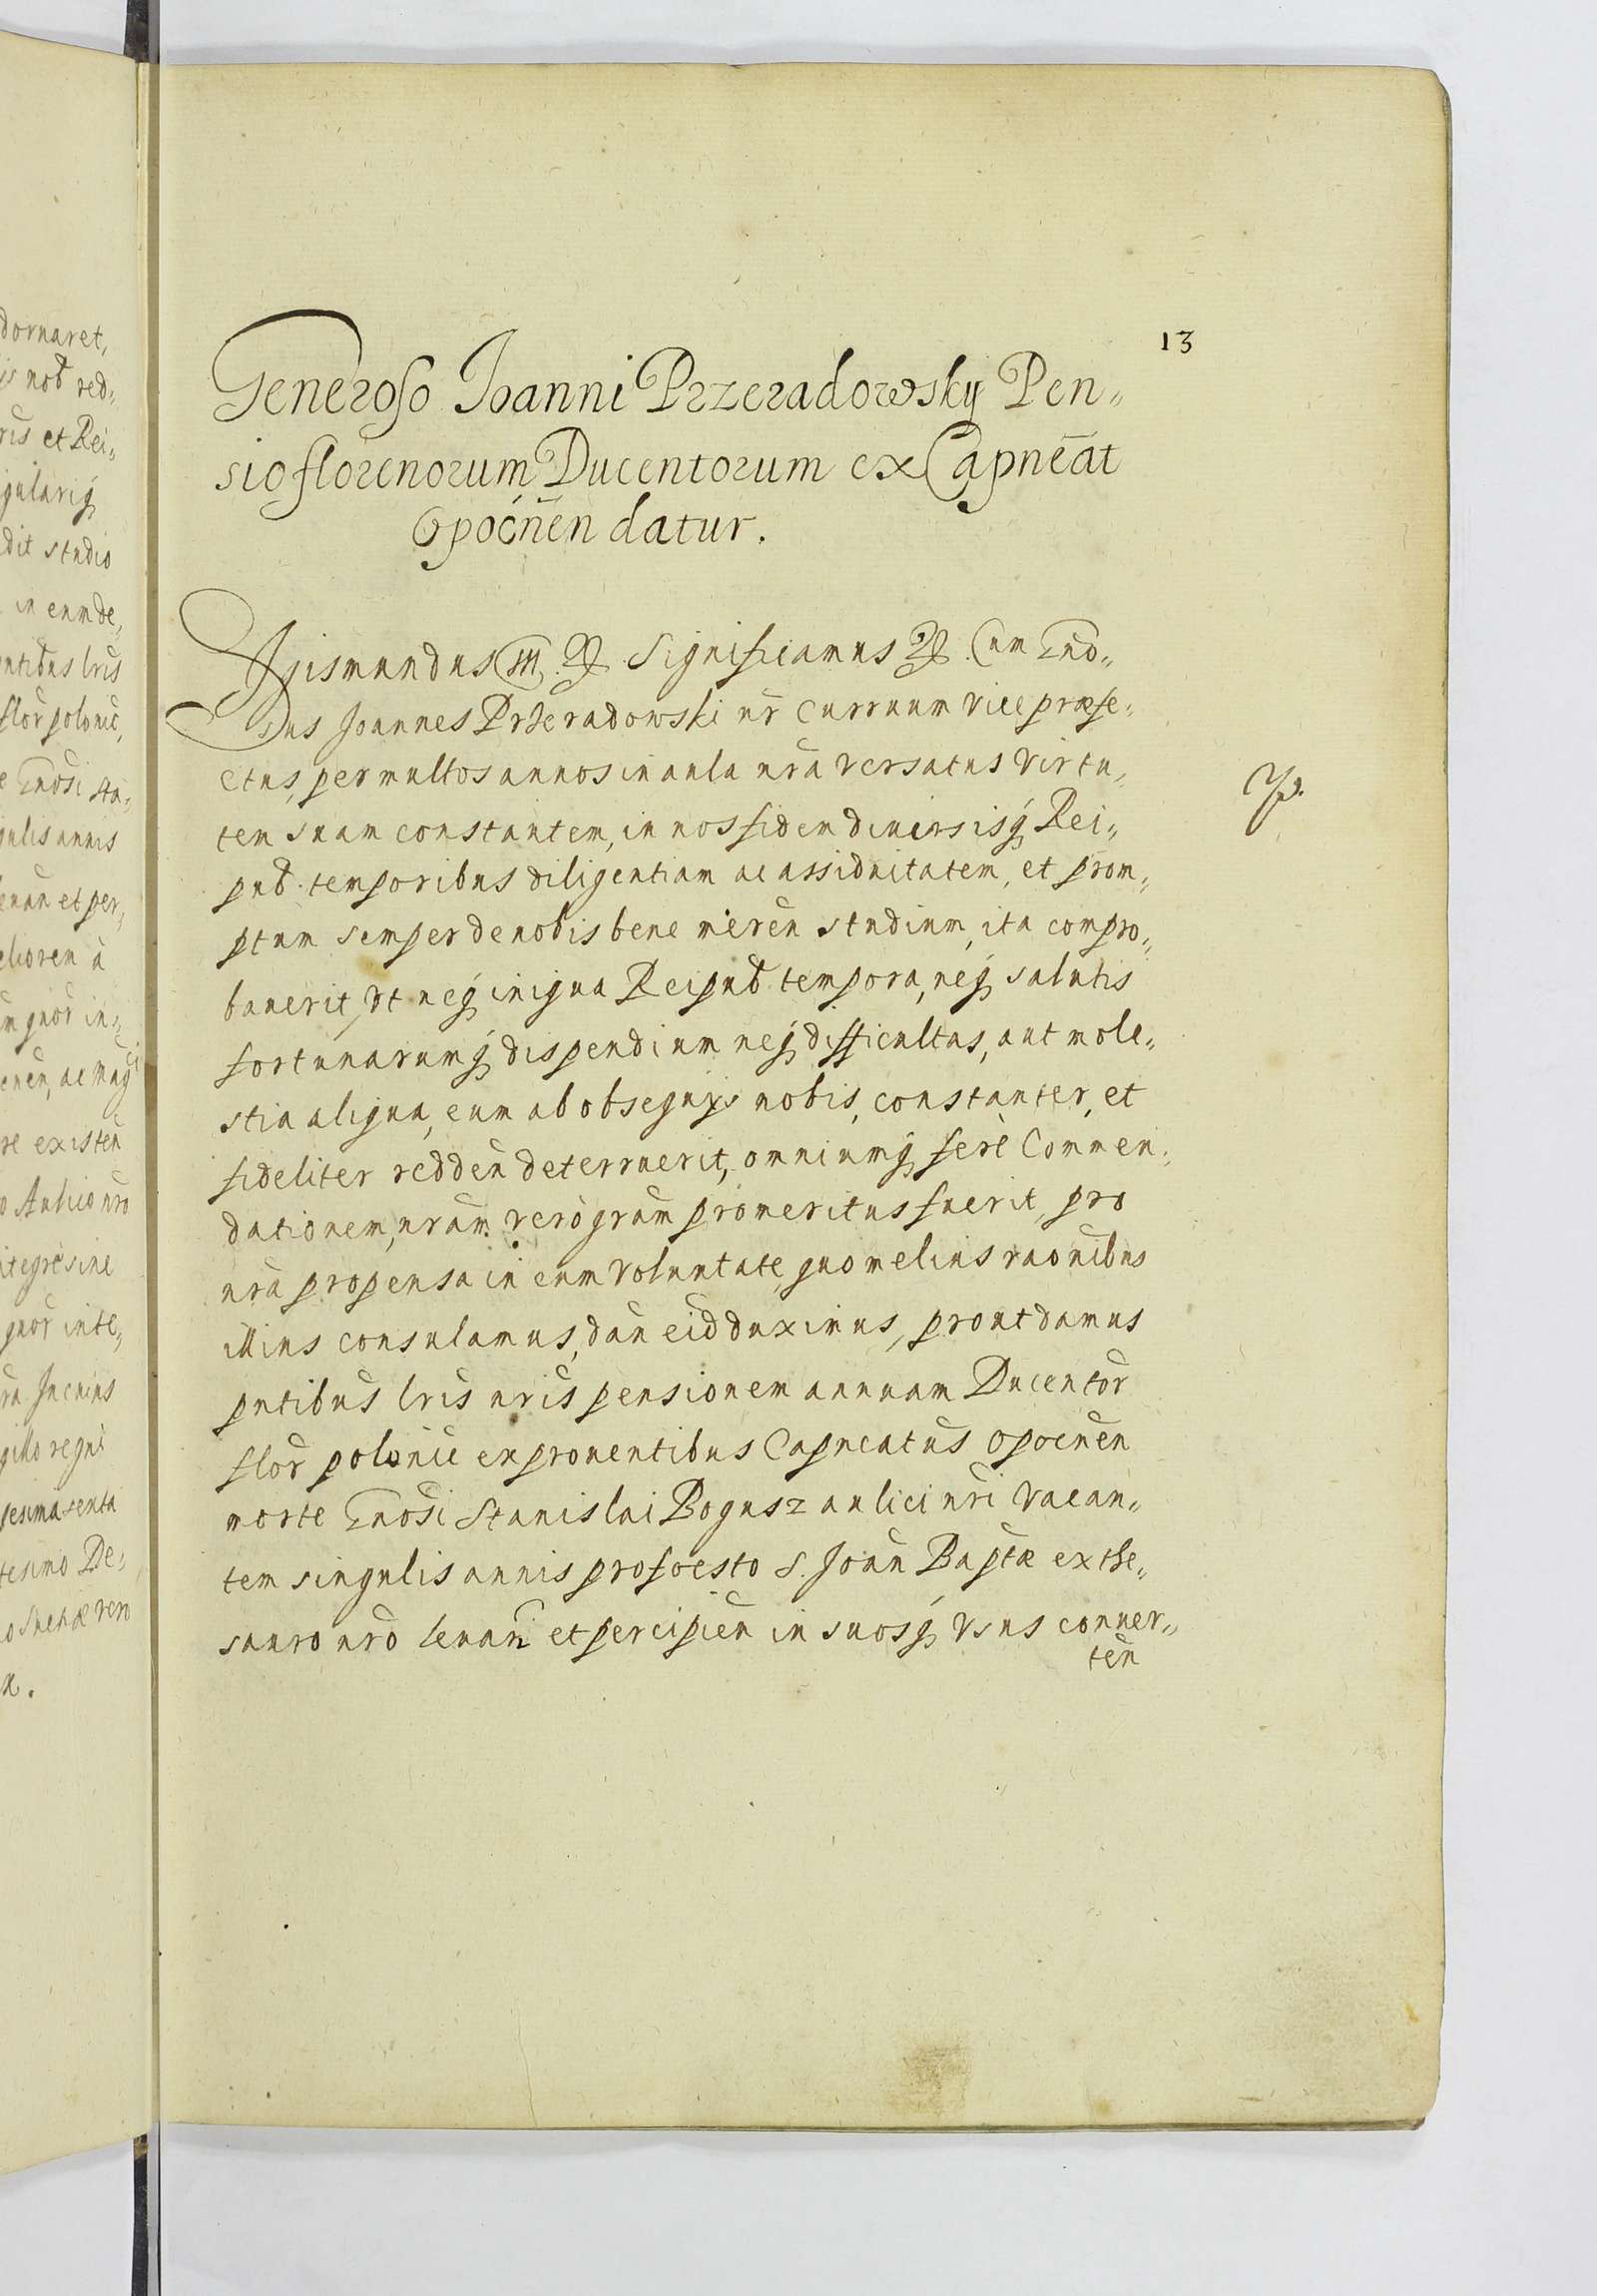 dornaret,
js nob̃ red„
ris et Rei„
gularią
dit studio
in eum de„
ntibus lris
flor̃ polonic̃,
e Gnosi Sta„
gulis annis
leuan̄ et per„
elioren̄ à
m quor̃ in„
enen̄, ac mag
re existen̄
o Aulico nr̄o
ntegrè sine
quor̃ inte„
ra In cuius
gillo regni
gesima sexta
tesimo De„
o Sueciæ vero
x.
13
Generoso Ioanni Przeradowsky Pen„
sio florenorum Ducentorum ex Capneāt
Opocn̄en datur.
Sigismundus III. &. Significamus &. Cum Gn̄o„
sus Joannes Przeradowski nr̄ Curruum vice præfe„
ctus, per multos annos in aula nr̄a versatus virtu„
tem suam constantem, in nos fidem diuersisq́ Rei„
pub̃. temporibus diligentiam ac assiduitatem, et prom„
ptum semper de nobis bene meren̄ studium, ita compro„
bauerit, vt neq́ iniqua Reipub̃ tempora, neq́ salutis
fortunarumq́ dispendium neq́ difficultas, aut mole„
stia aliqua, eum ab obsequijs nobis, constanter, et
fideliter redden̄ deterruerit, omniumq́ ferè Commen„
dationem, nr̄am verò gram̄ promeritus fuerit, pro
nr̄a propensa in eum voluntate, quo melius rao̅nibus
illius consulamus, dan̄ eid̄ duximus, prout damus
pn̄tibus lr̄is nr̄is pensionem annuam Ducentor̃
flor̃ polonic̃ ex prouentibus Capneatus Opocnen̄
morte Gn̄osi Stanislai Bogusz aulici nr̄i vacan„
tem singulis annis pro foesto S. Joan̄ Bapt̄æ ex the„
sauro nr̄o leuan̄ et percipien̄ in suosq́ vsus conuer„
ten̄